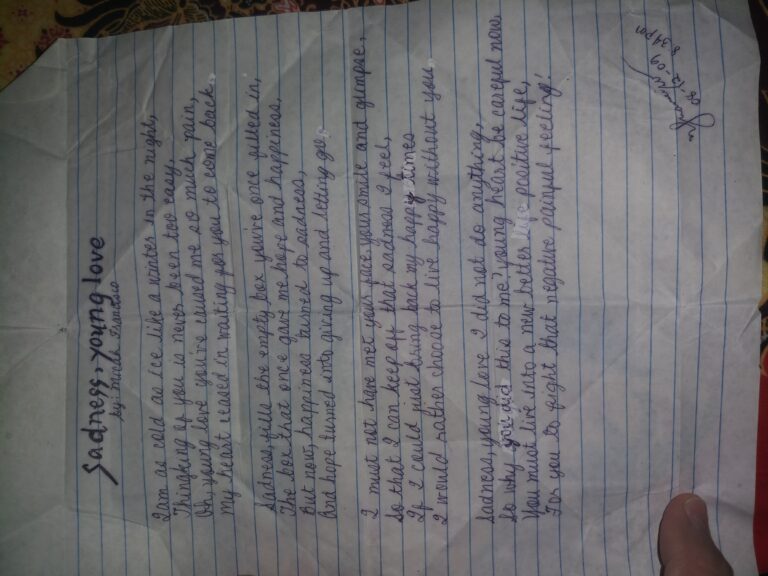 Sadness, young love
by: Micla Francisco
I am as cold as ice like a winter in the night,
Thingking of you is never been too easy,
Oh, young love you're caused me so much pain,
My heart ceased in waiting for you to come back.
Sadness, fills the empty box you're once filled in,
The box that once gave me hope and happiness,
But now, happiness turned to sadness,
And hope turned into giving up and letting go.
I must not have met your face your smile and glimpse,
So that I can keep off that sadness I feel,
If I could just bring back my happy times
I would rather choose to live happy without you.
Sadness, young love I did not do anything,
So why you did this to me? young heart be careful now
You must live into a new better life positive life,
For you to fight that negative painful feeling!
08-12-09
8:34pm